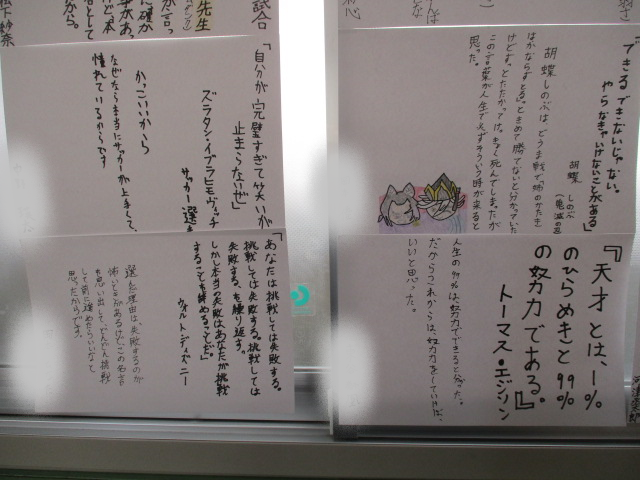 先生
試合
「自分が完璧すぎて笑いが
止まらないぜ」
ズラタン・イブラヒモヴィッチ
サッカー選
かっこいいから
なぜなら本当にサッカーが上手くて、
憧れているからです
「できるできないじゃない。
やらなきゃいけないことがある」
胡蝶しのぶ
（鬼滅の刃
胡蝶しのぶは、どうま戦で姉のかたき
はかならずとる。ときめて勝てないと分かっていた
けどずっとたたかってけっきょく死んでしまったが
この言葉が人生で必ずそういう時が来ると
思った。
「あなたは挑戦しては失敗する。
挑戦しては失敗する。挑戦しては
失敗する、を繰り返す。
しかし本当の失敗はあなたが挑戦
することを諦めることだ。」
ウォルト・ディズニー
選んだ理由は、失敗するのが
怖いときがあるけどこの名言
を思い出して、どんどん挑戦
して前に進めたらいいなと
思ったからです。
『天才とは、1%
のひらめきと99%
の努力である。』
トーマス・エジソン
人生の99%は、努力でできると分かった。
だからこれからは、努力をしていけば、
いいと思った。